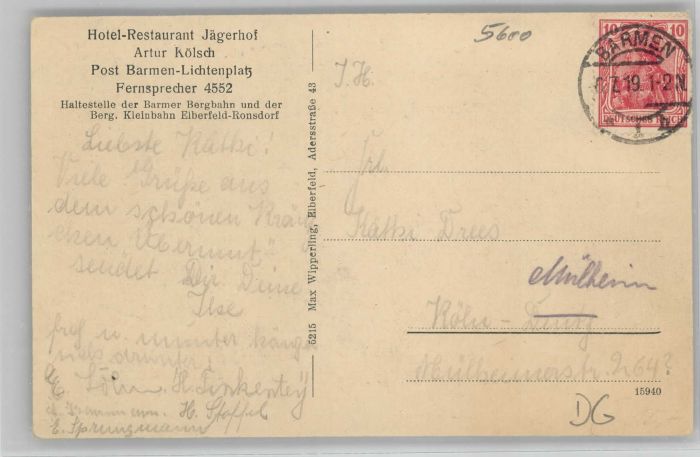 Hotel-Restaurant Jägerhof
Artur Kölsch
Post Barmen-Lichtenplatz
Fernsprecher 4552
Haltestelle der Barmer Bergbahn und der
Berg. Kleinbahn Elberfeld-Ronsdorf
Liebste Käthi!
Viele Grüße aus
dem schönen
sendet Dir Deine
Ilse
H. Stoffel
5215 Max Wipperling, Elberfeld, Adersstraße 43
5600
10 10
DEUTSCHES REICH
BARMEN
7.19.1-2N
Frl.
Käthi Drees
Mülheim
Köln-Deutz
Mülheimerstr. 264?
15940
DG